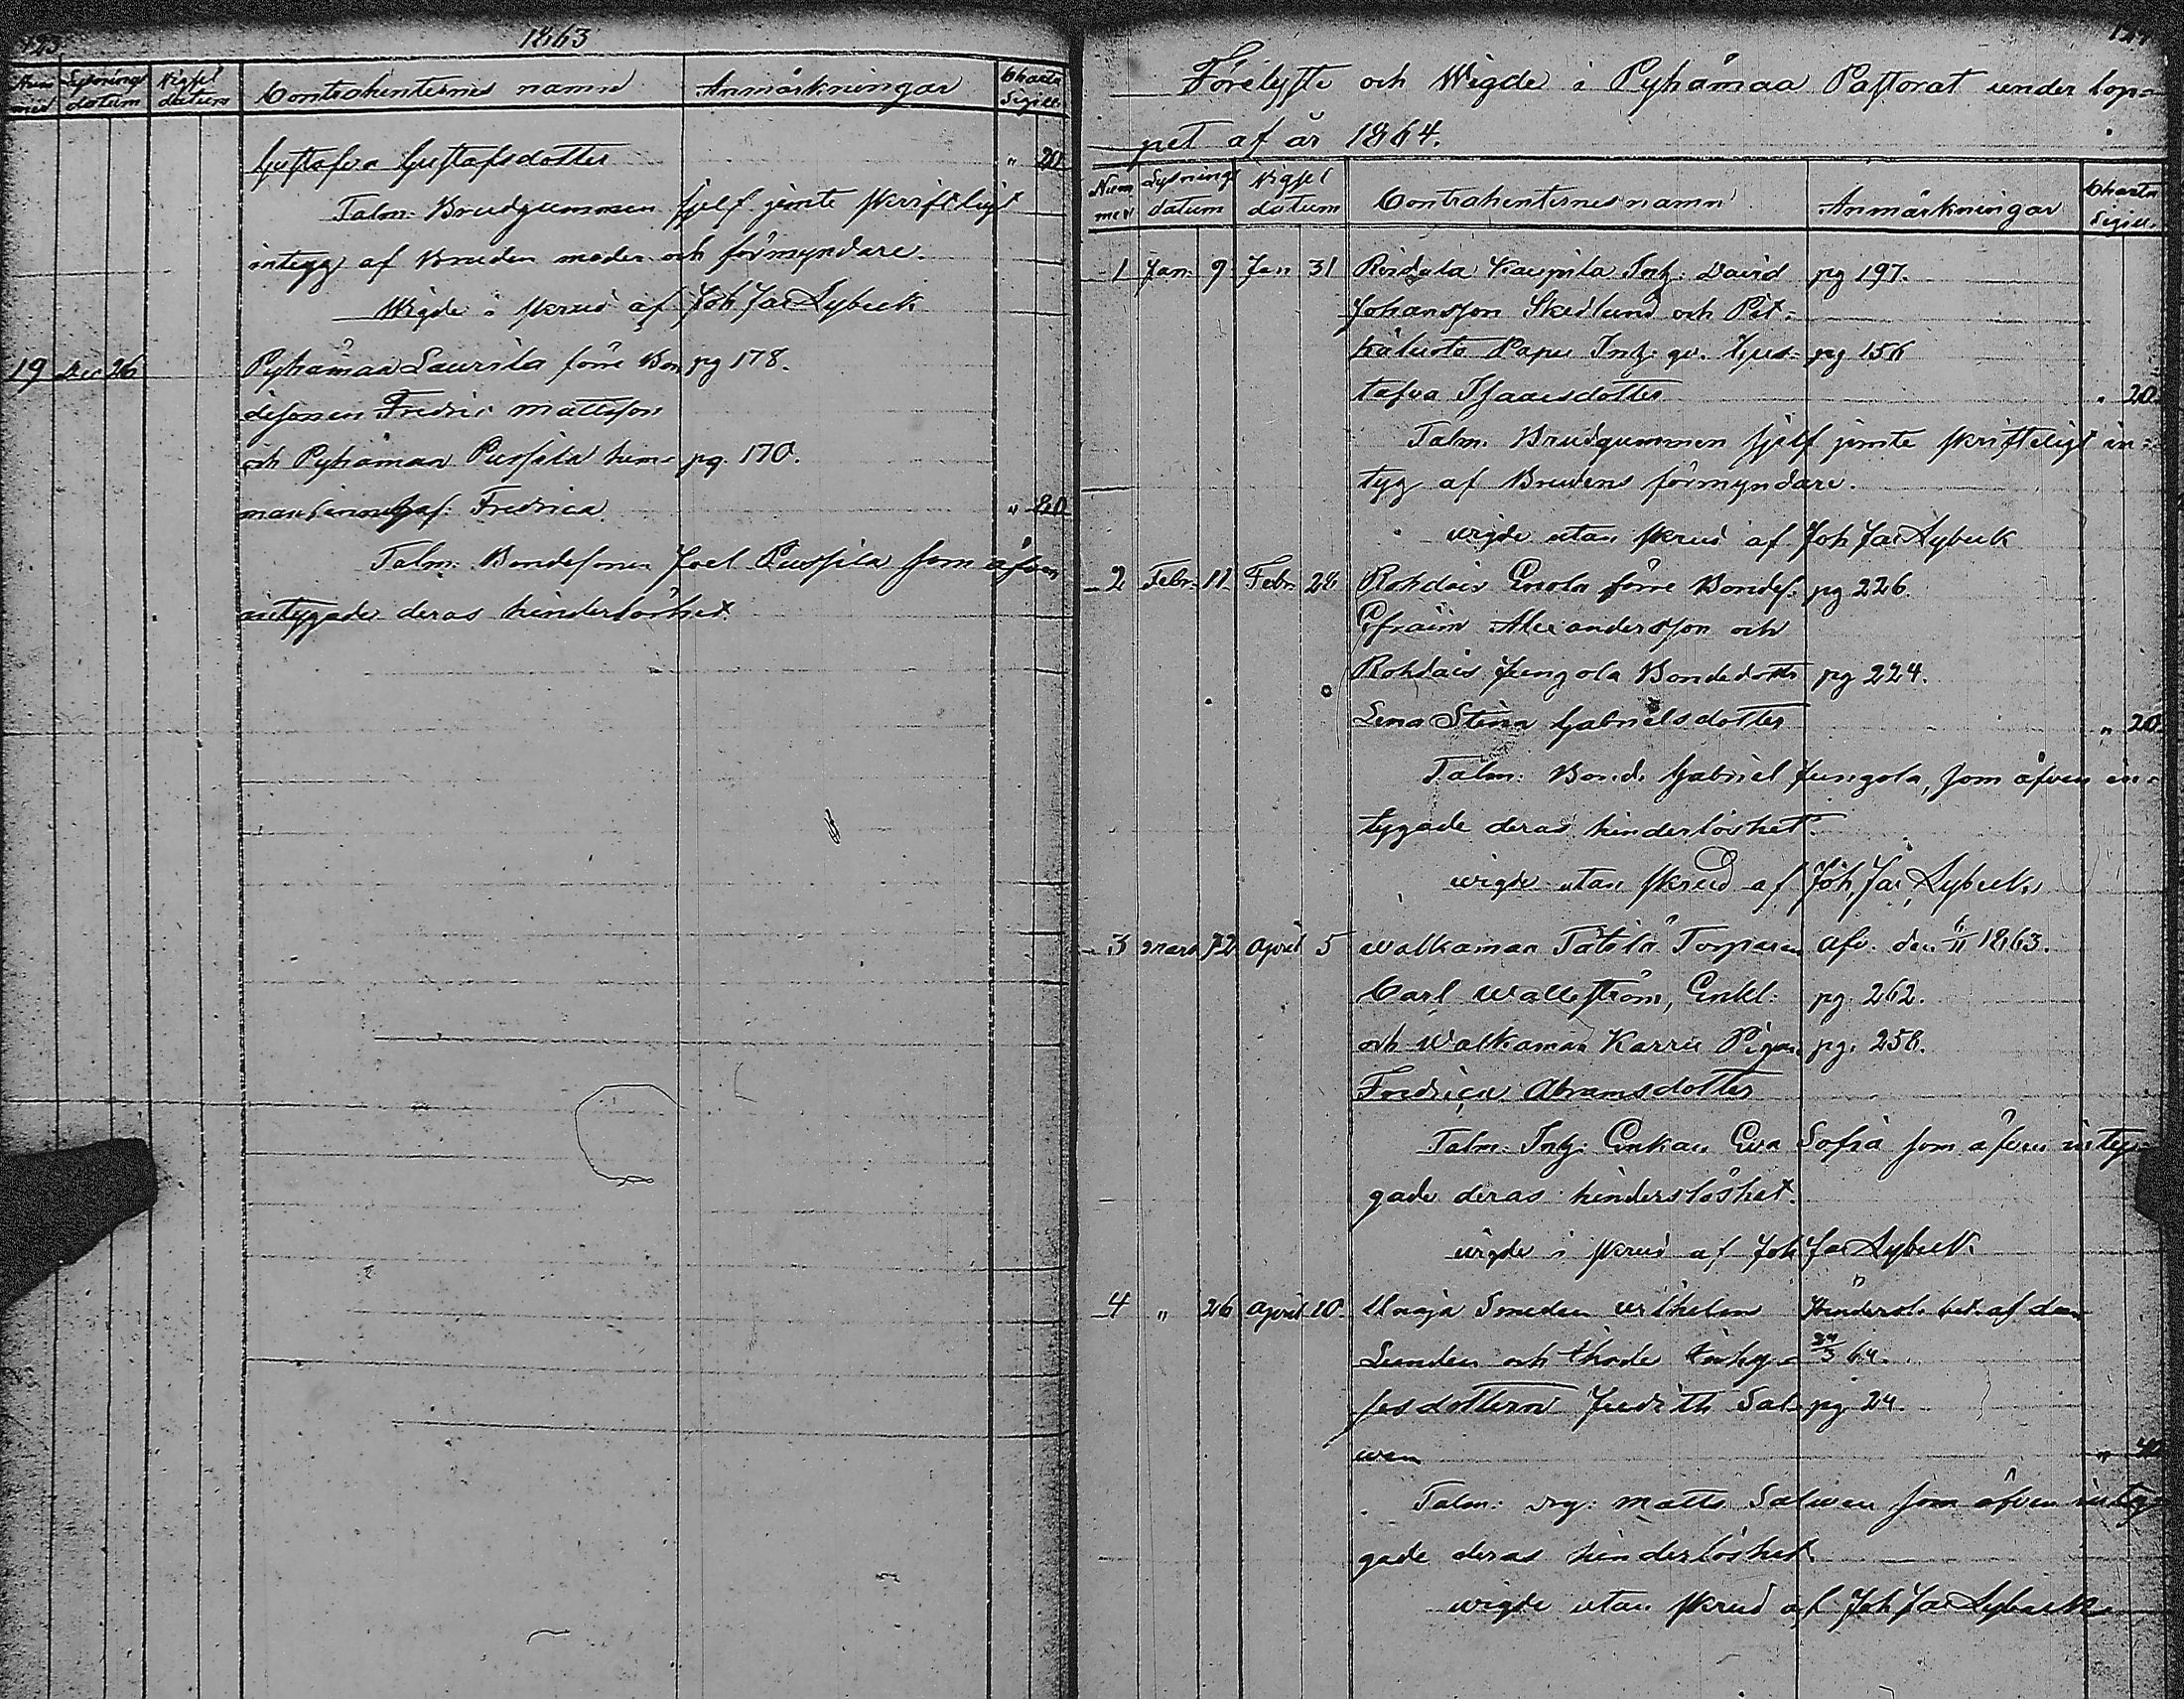 123
1863
Num mer
Lysnings datum
Vigsel datum
Contrahenternes namn
Anmärkningar
Charta Sigill.
Gustafva Gustafsdotter " 20
Talm: Brudgummen sjelf jemte skriftligt
intyg af Bruden moder och förmyndare.
Wigde i skrud af Joh Jac Lybeck
19 Dec 26 Pyhämaa Laurila förre Bon pg 178.
desonen Fredric Mattsson
och Pyhämaa Pussila hem- pg. 170.
Fredrica " 80
Talm: Bondesonen Joel Pussila som äfven
intygade deras hinderlöshet.
Förelyste och Wigde i Pyhämaa Pastorat under lop-
pet af år 1864.
Num mer
Lysnings datum
Vigsel datum
Contrahenternes namn
Anmärkningar
Charta Sigill.
1 Jan 9 Jan 31 Kaupila Inh: David pg 197.
Johansson Skedlund och Pit-
käluoto Papu Inh: qv. Gus- pg 156
tafva Isaacsdotter " 20
Talm. Brudgummen sjelf jemte skrifteligt in-
tyg af Brudens förmyndare.
wigde utan skrud af Joh Jac Lybeck
2 Febr. 11 Febr. 28 Rohdais Enola förre Bondes. pg 226.
Efraim Alexandersson och
Rohdais Jungola Bondedottr pg 224.
Lena Stina Gabrielsdotter " 20
Talm: Bond. Gabriel Jungola, som äfven in-
tygade deras hinderlöshet.
wigde utan skrud af Joh. Jac Lybeck
3 Mars 12 April 5 Walkamaa Tätilä Torparen afv. den 6/11 1863.
Carl Wallström, Enkl: pg. 262.
och Walkamaa Karru Pigan pg. 258.
Fredrica Abramsdotter
Talm: Inh: Enkan Eva Sofia som äfven inty-
gade deras hinderslöshet.
wigde i skrud af Joh Jac Lybeck
4 " 26 April 10. Smeden Wilhelm Hindersl. bet. af den
Lunden och 24/3 64.
jesdottern Judith Sal- pg 24.
wen " 40
Talm: Matts Salwen som äfven intyg-
gade deras hinderlöshet
wigde utan skrud af Joh Jac Lybeck